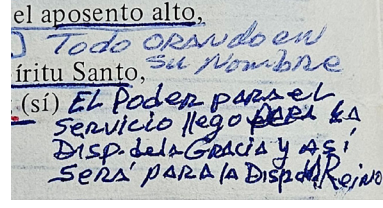 el aposento alto,
Todo ORANdo en
su Nombre
íritu Santo,
(sí) EL Poder para el
Servicio llego PARA LA
Disp. de la GRACIA y ASí
SERÁ PARA la Disp del Reino